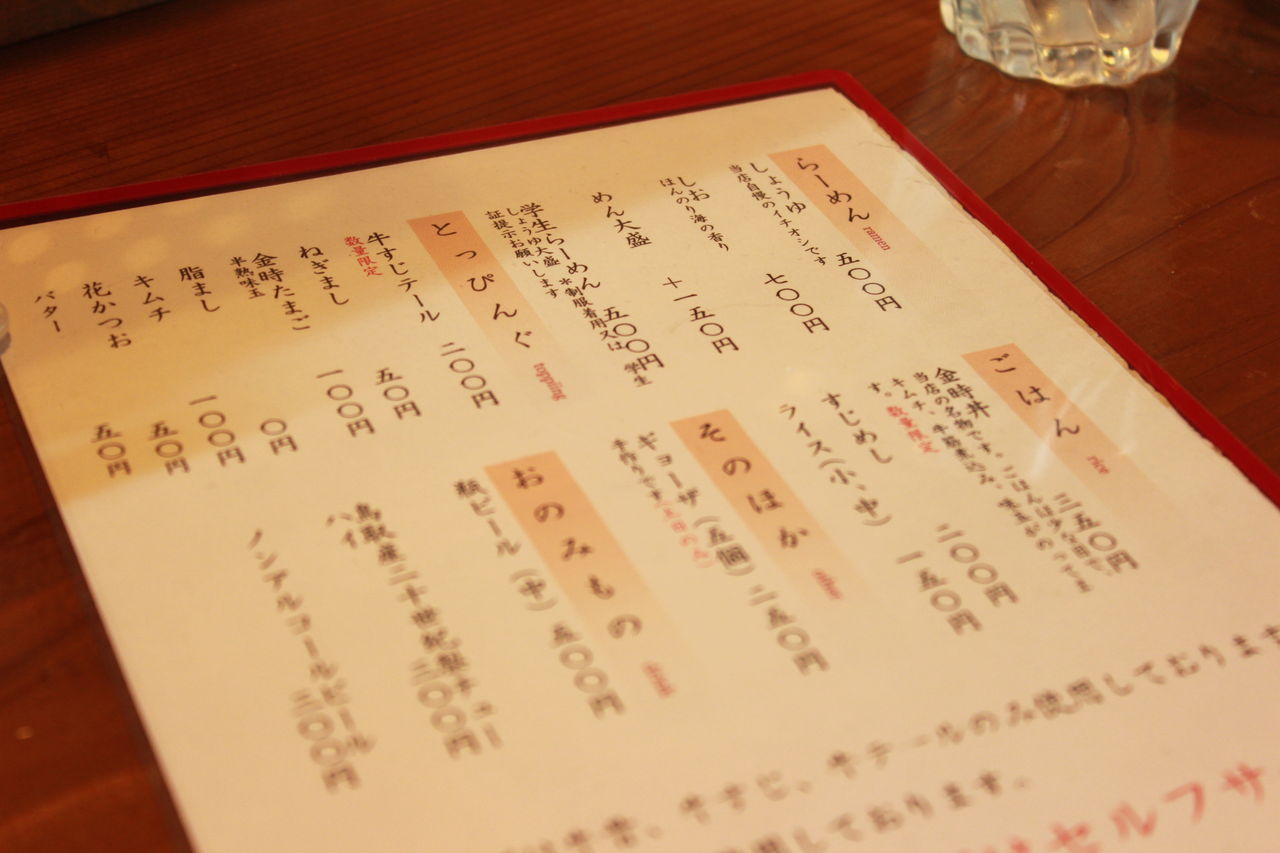 らーめん
ramen
しょうゆ 五〇〇円
当店自慢のイチオシです
しお 七〇〇円
ほんのり海の香り
めん大盛 +一五〇円
学生らーめん 五〇〇円
しょうゆ大盛 *制服着用又は学生
証提示お願いします
とっぴんぐ
topping
牛すじテール 二〇〇円
数量限定
ねぎまし 五〇円
金時たまご 一〇〇円
半熟味玉
脂まし 〇円
キムチ 一〇〇円
花かつお 五〇円
バター 五〇円
ごはん
金時丼 三五〇円
当店の名物です。ごはんは少な目で、
キムチ、牛筋煮込み、味玉がのってま
す。数量限定
すじめし 二〇〇円
ライス(小、中) 一五〇円
そのほか
ギョーザ(五個) 二五〇円
手作りです
おのみもの
瓶ビール(中) 五〇〇円
鳥取産二十世紀梨チュー
ハイ 二〇〇円
ノンアルコールビール 二〇〇円
牛骨、牛すじ、牛テールのみ使用しております
使用しております。
はセルフサ